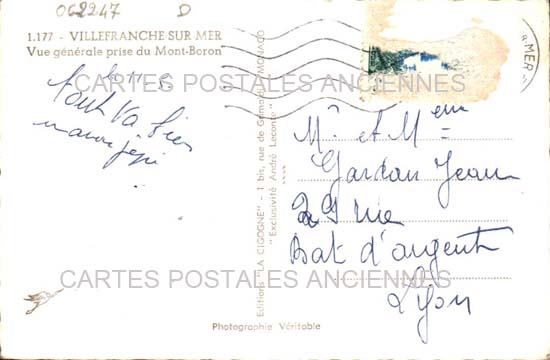 062247 D
1.177 - VILLEFRANCHE SUR MER
Vue générale prise du Mont-Boron
MER
CARTES POSTALES ANCIENNES
tout va bien
Mr et Mme
Gardon Jean
29 rue
Bat d'argent
Lyon
Editions "LA CIGOGNE" - 1 bis, rue de Grimaldi - MONACO
"Exclusivité André Leconte"
CARTES POSTALES ANCIENNES
Photographie Véritable